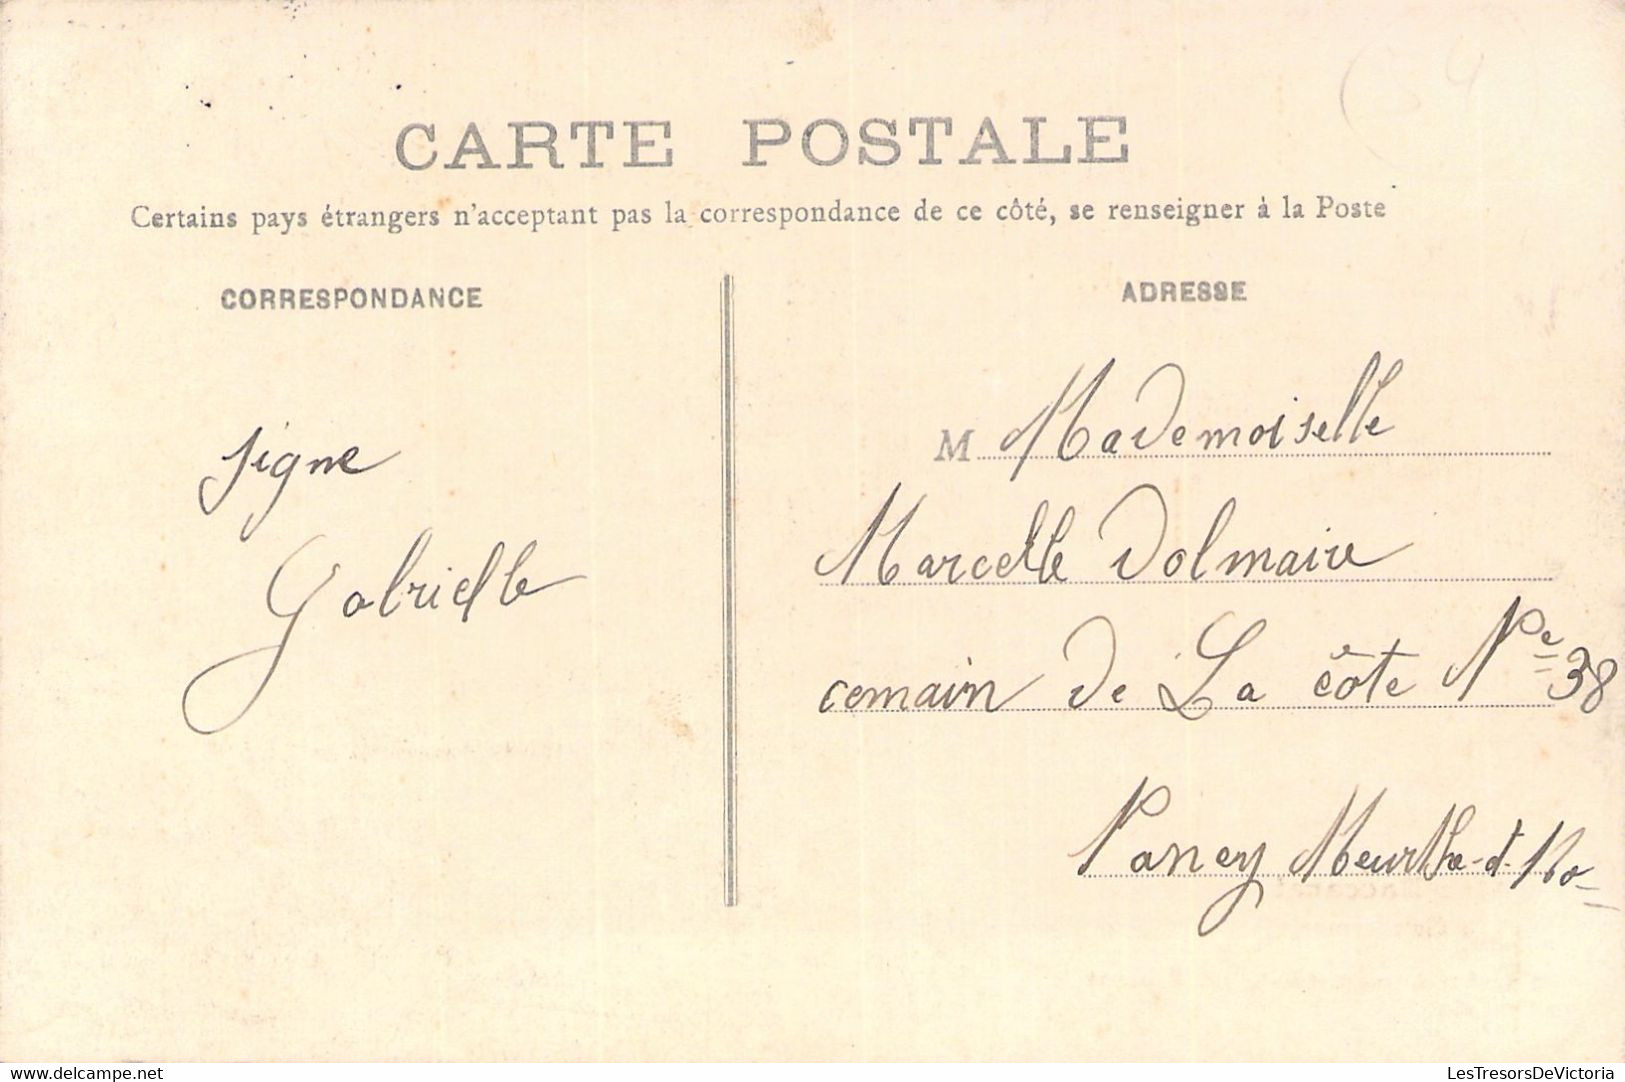 CARTE POSTALE
Certains pays étrangers n'acceptant pas la correspondance de ce côté, se renseigner à la Poste
CORRESPONDANCE
signe
Gabrielle
ADRESSE
M Mademoiselle
Marcelle Dolmaire
cemain de La côte Ne 38
Naney Meurthe-et-Mo
delcampe.net
LesTresorsDeVictoria